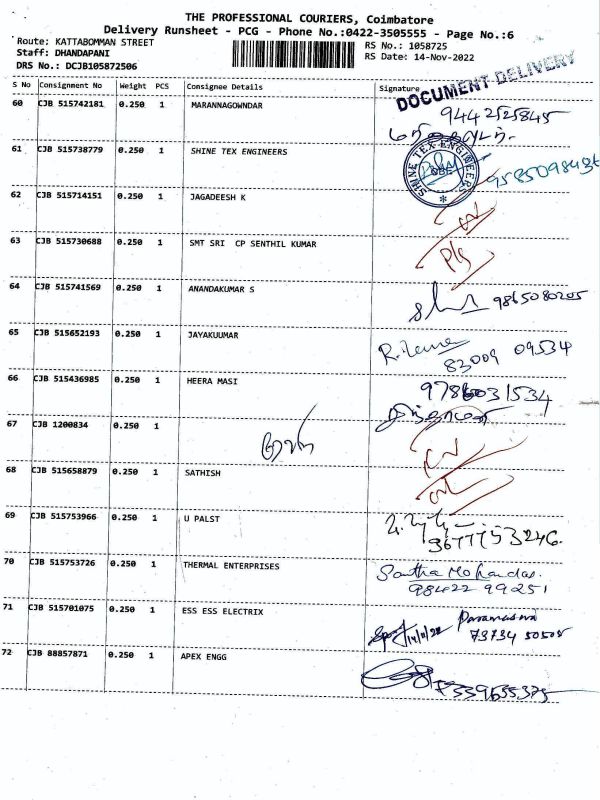 THE PROFESSIONAL COURIERS, Coimbatore
Delivery Runsheet - PCG - Phone No.:0422-3505555 - Page No.:6
Route: KATTABOMMAN STREET
RS No.: 1058725
Staff: DHANDAPANI
RS Date: 14-Nov-2022
DRS No.: DCJB105872506
S No Consignment No Weight PCS Consignee Details Signature
DOCUMENT DELIVERY
60 CJB 515742181 0.250 1 MARANNAGOWNDAR 9442525845
61 CJB 515738779 0.250 1 SHINE TEX ENGINEERS SHINE TEX ENGINEERS
62 CJB 515714151 0.250 1 JAGADEESH K
63 CJB 515730688 0.250 1 SMT SRI CP SENTHIL KUMAR
64 CJB 515741569 0.250 1 ANANDAKUMAR S 9865080205
65 CJB 515652193 0.250 1 JAYAKUUMAR
83009 09534
66 CJB 515436985 0.250 1 HEERA MASI
67 CJB 1200834 0.250 1
68 CJB 515658879 0.250 1 SATHISH
69 CJB 515753966 0.250 1 U PALST
70 CJB 515753726 0.250 1 THERMAL ENTERPRISES Santha Mohandas.
98422 99251
71 CJB 515701075 0.250 1 ESS ESS ELECTRIX
14/11/22 73734 50505
72 CJB 88857871 0.250 1 APEX ENGG